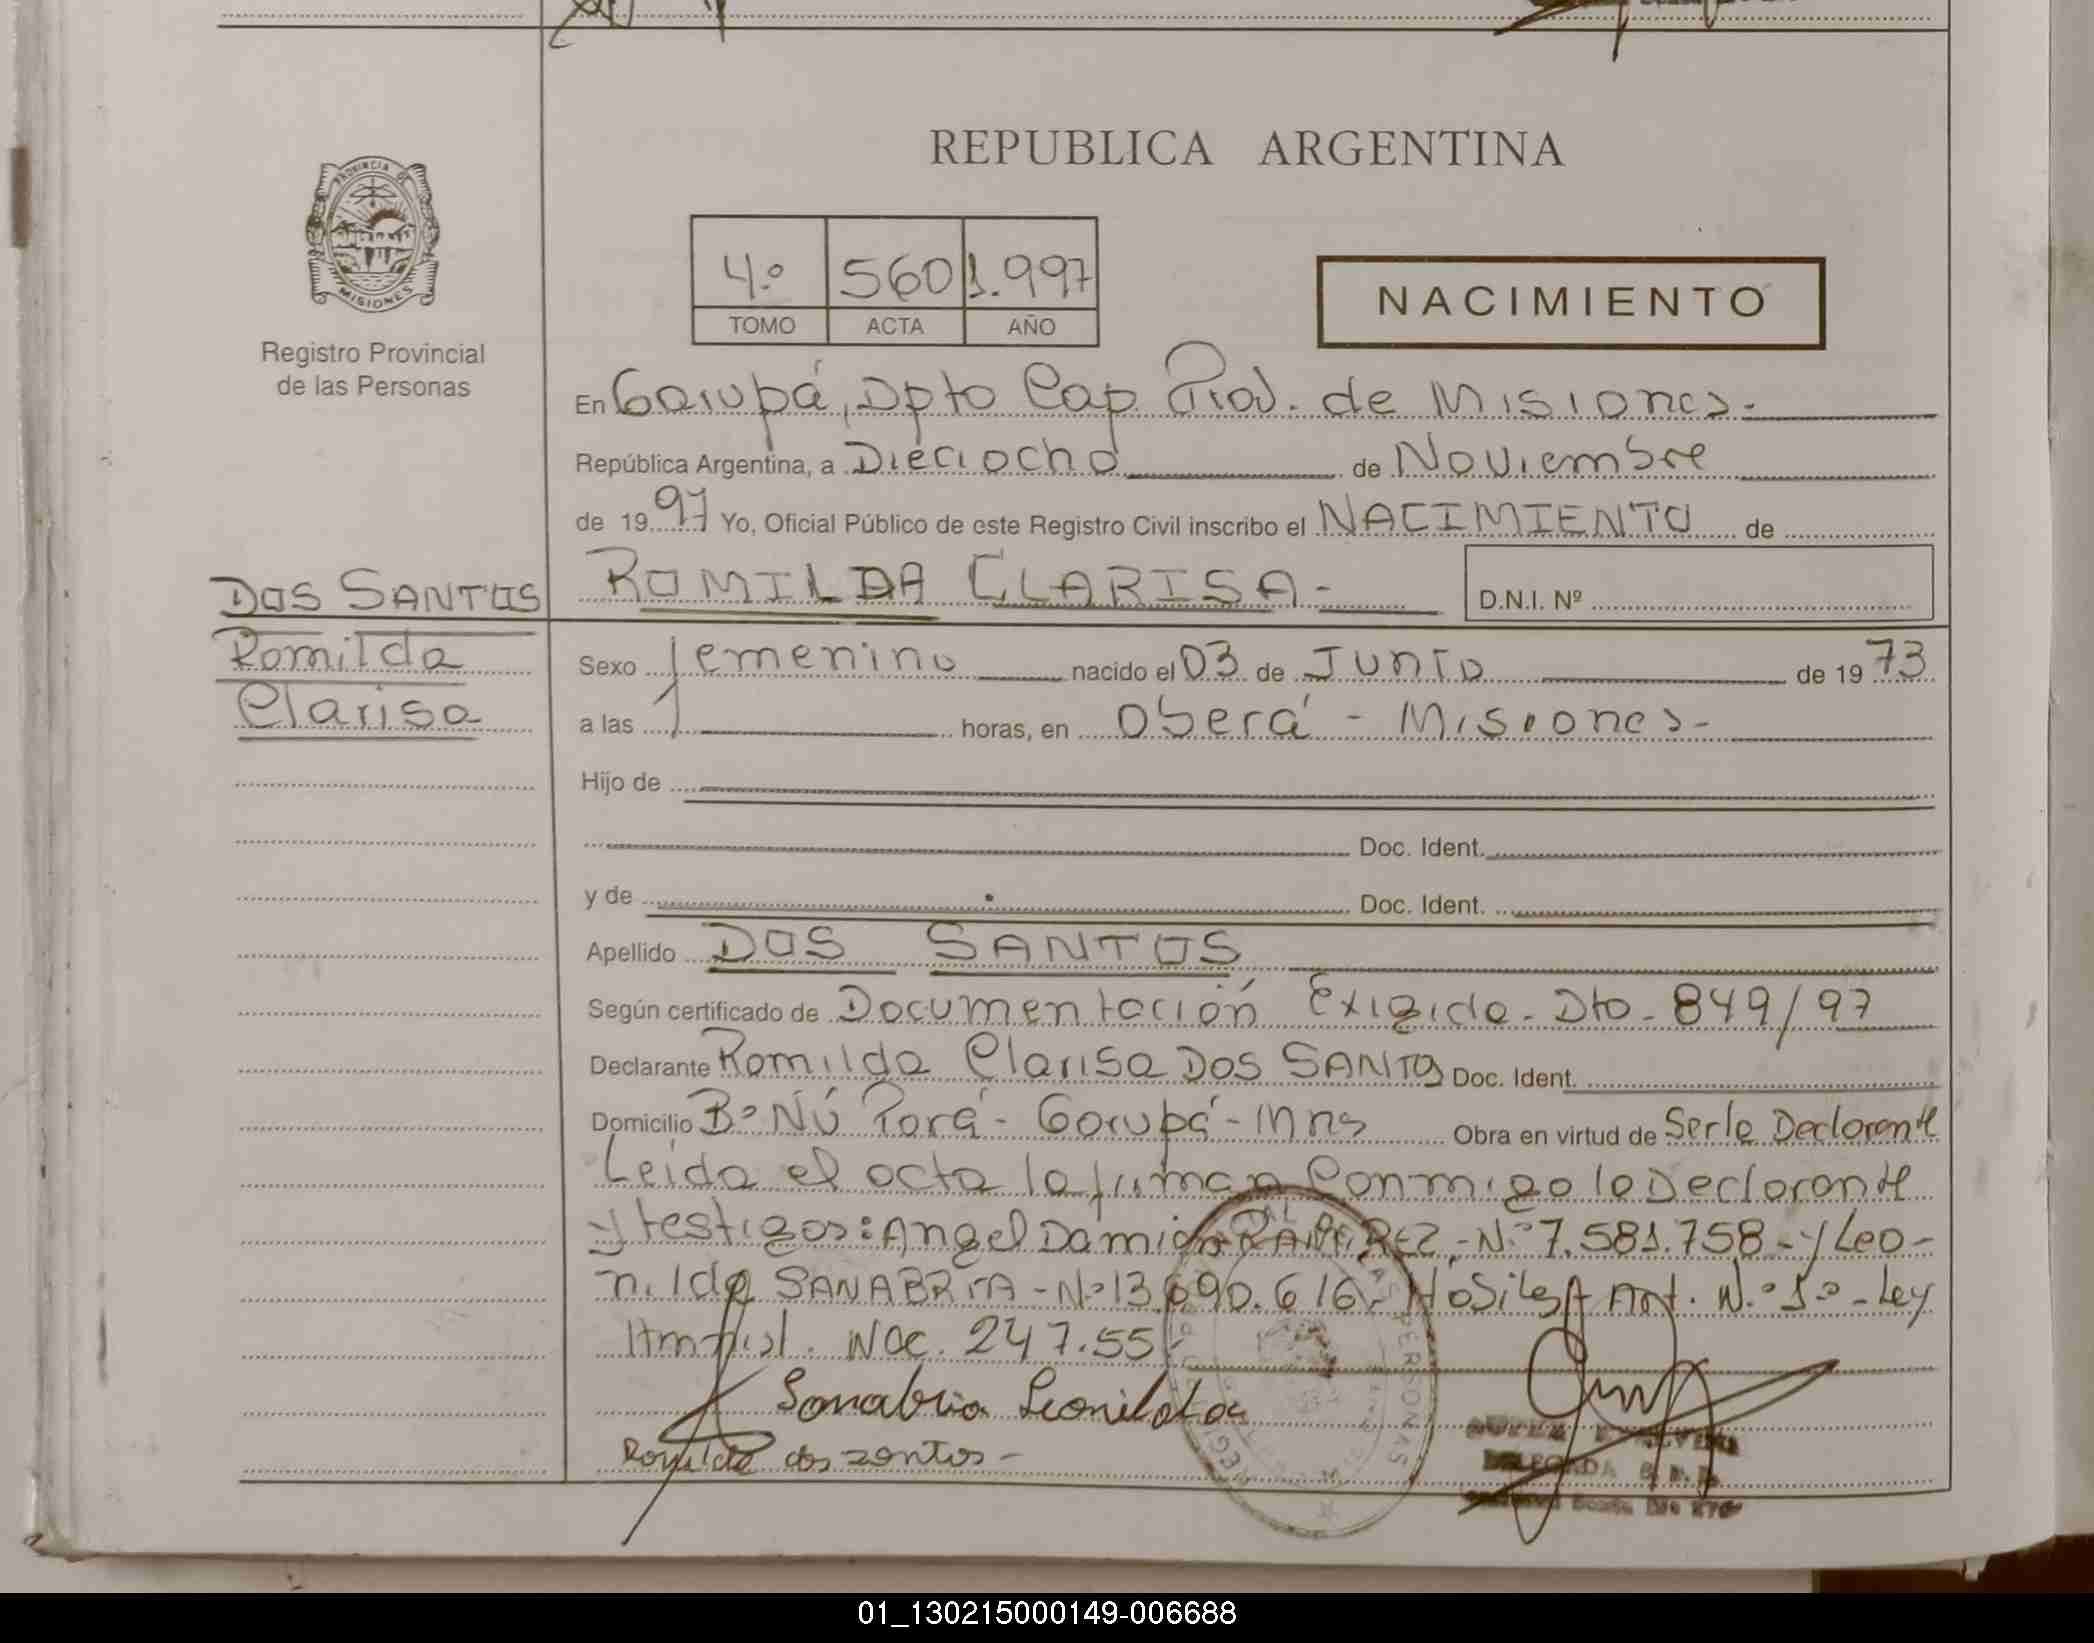 REPUBLICA ARGENTINA
PROVINCIA DE
MISIONES
Registro Provincial
de las Personas
4.º 560 1.997
TOMO ACTA AÑO
NACIMIENTO
En Garupá, Dpto Cap. Prov. de Misiones.-
República Argentina, a Dieciocho de Noviembre
de 1997 Yo, Oficial Público de este Registro Civil inscribo el NACIMIENTO de
ROMILDA CLARISA- D.N.I. Nº
DOS SANTOS
Romilda
Clarisa
Sexo femenino nacido el 03 de Junio de 1973
a las horas, en Oberá - Misiones-
Hijo de
Doc. Ident.
y de Doc. Ident.
Apellido DOS SANTOS
Según certificado de Documentación Exigida. Dto. 849/97
Declarante Romilda Clarisa DOS SANTOS Doc. Ident.
Domicilio Bº Ñú Porá - Garupá - Mnes Obra en virtud de Serla Declarante
Leida el acta la firman conmigo la Declarante
y testigos: Angel Damian RAMIREZ - Nº 7.581.758 - y Leo-
nilda SANABRIA - Nº 13.690.616.- Art. N.º 1º - Ley
Nac. 247.55
Sanabria Leonilda
Romilda dos zantos -
DELEGADA
01_130215000149-006688